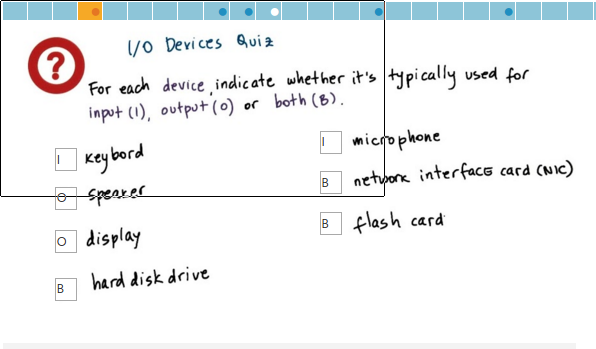 I/O Devices Quiz
?
For each device, indicate whether it's typically used for
input (I), output (O) or both (B).
I keybord
O speaker
O display
B hard disk drive
I microphone
B network interface card (NIC)
B flash card